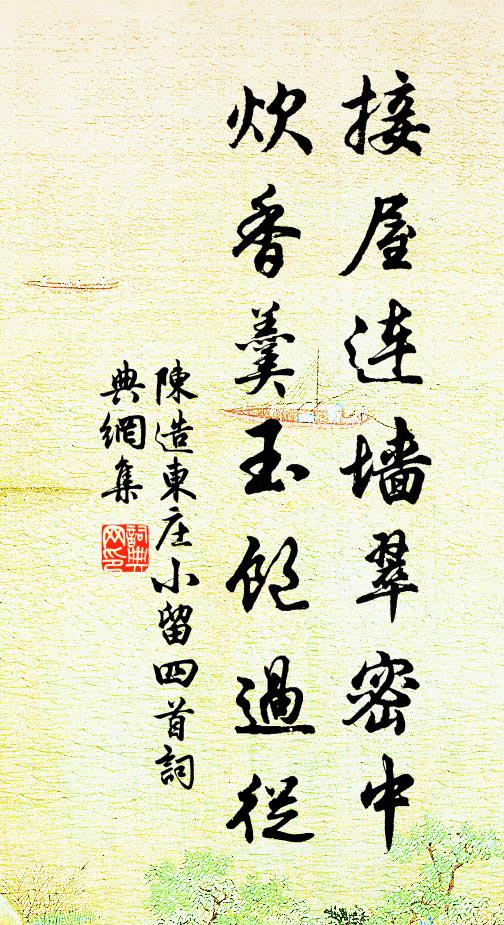 接屋连墙翠密中
炊香羹玉饱過從
陳造東庄小留四首詞
典網集
詞典
网印